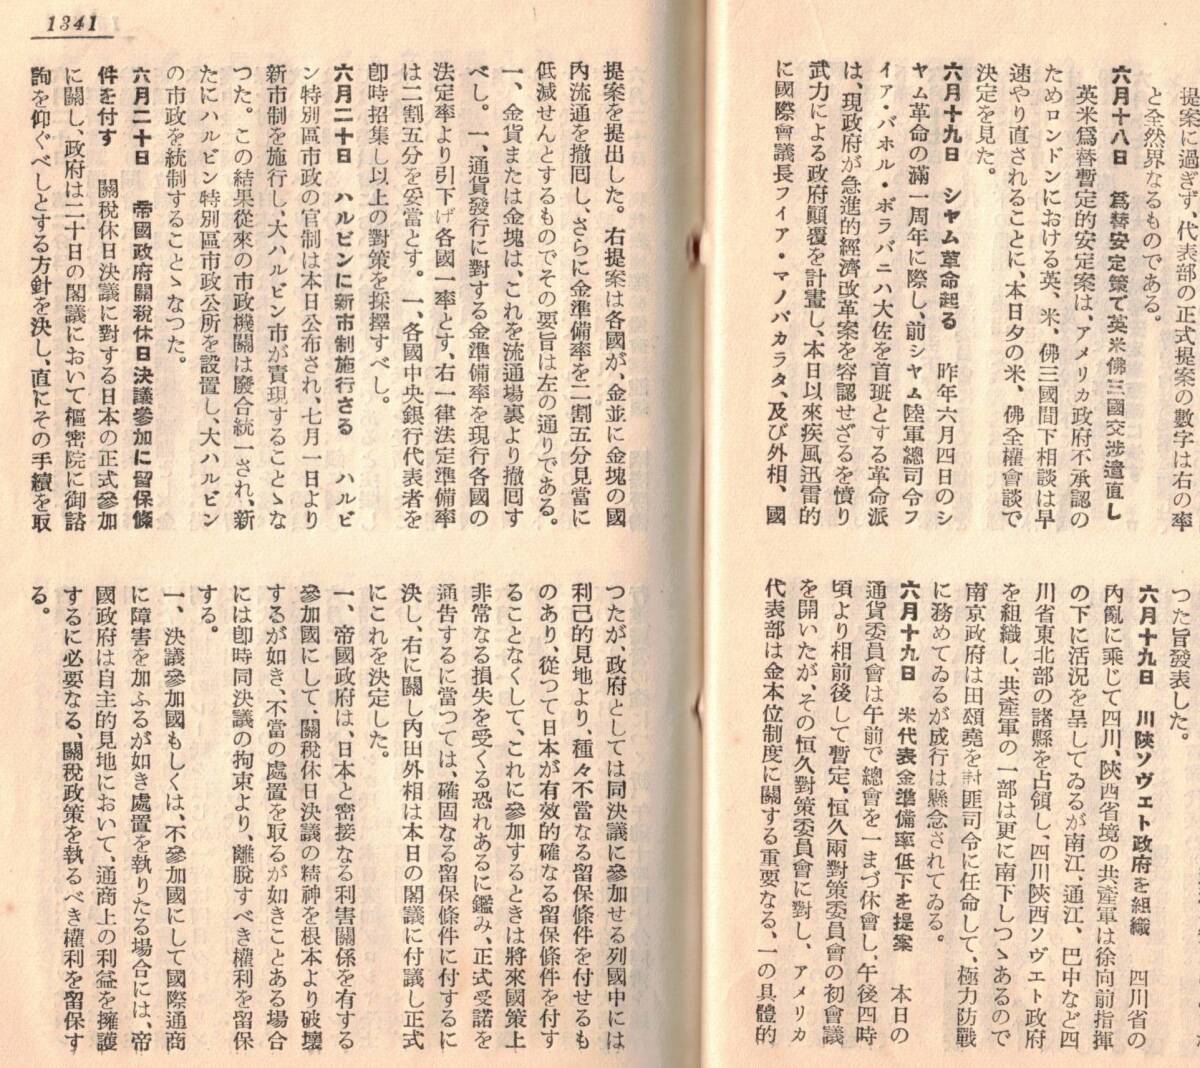 提案に過ぎず、代表部の正式提案の数字は右の率
と全然異なるものである。
六月十八日　爲替安定策で英米佛三國交渉遣直し
英米爲替暫定的安定案は、アメリカ政府不承認の
ためロンドンにおける英、米、佛三國間下相談は早
速やり直されることに、本日夕の米、佛全權會談で
決定を見た。
六月十九日　シャム革命起る　昨年六月四日のシ
ヤム革命の滿一周年に際し、前シャム陸軍總司令フ
イア・バホル・ボラバニハ大佐を首班とする革命派
は、現政府が急進的經濟改革案を容認せざるを憤り
武力による政府顚覆を計畫し、本日以來疾風迅雷的
に國際會議長フイア・マノバカラタ、及び外相、國
つた旨發表した。
六月十九日　川陝ソヴエト政府を組織　四川省の
內亂に乘じて四川、陝西省境の共產軍は徐向前指揮
の下に活況を呈してゐるが南江、通江、巴中など四
川省東北部の諸縣を占領し、四川陝西ソヴエト政府
を組織し、共產軍の一部は更に南下しつゝあるので
南京政府は田頌堯を討匪司令に任命して、極力防戰
に務めてゐるが成行は懸念されてゐる。
六月十九日　米代表金準備率低下を提案　本日の
通貨委員會は午前で總會を一まづ休會し、午後四時
頃より相前後して暫定、恒久兩對策委員會の初會議
を開いたが、その恒久對策委員會に對し、アメリカ
代表部は金本位制度に關する重要なる、一の具體的
1341
提案を提出した。右提案は各國が、金並に金塊の國
內流通を撤囘し、さらに金準備率を二割五分見當に
低減せんとするものでその要旨は左の通りである。
一、金貨または金塊は、これを流通場裏より撤囘す
べし。一、通貨發行に對する金準備率を現行各國の
法定率より引下げ各國一率とす、右一律法定準備率
は二割五分を妥當とす。一、各國中央銀行代表者を
卽時招集し以上の對策を採擇すべし。
六月二十日　ハルビンに新市制施行さる　ハルビ
ン特別區市政の官制は本日公布され、七月一日より
新市制を施行し、大ハルビン市が實現することゝな
つた。この結果從來の市政機關は廢合統一され、新
たにハルビン特別區市政公所を設置し、大ハルビン
の市政を統制することゝなつた。
六月二十日　帝國政府關稅休日決議參加に留保條
件を付す　關稅休日決議に對する日本の正式參加
に關し、政府は二十日の閣議において樞密院に御諮
詢を仰ぐべしとする方針を決し、直にその手續を取
つたが、政府としては同決議に參加せる列國中には
利己的見地より、種々不當なる留保條件を付せるも
のあり、從つて日本が有效的確なる留保條件を付す
ることなくして、これに參加するときは將來國策上
非常なる損失を受くる恐れあるに鑑み、正式受諾を
通告するに當つては、確固なる留保條件に付するに
決し、右に關し內田外相は本日の閣議に付議し正式
にこれを決定した。
一、帝國政府は、日本と密接なる利害關係を有する
參加國にして、關稅休日決議の精神を根本より破壞
するが如き、不當の處置を取るが如きことある場合
には卽時同決議の拘束より、離脫すべき權利を留保
する。
一、決議參加國もしくは、不參加國にして國際通商
に障害を加ふるが如き處置を執りたる場合には、帝
國政府は自主的見地において、通商上の利益を擁護
するに必要なる、關稅政策を執るべき權利を留保す
る。